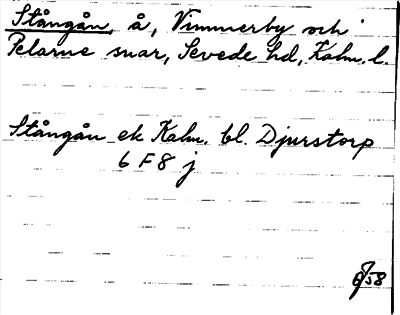 Stångån å, Vimmerby och
Pelarne snar, Sevede hd, Kalm. l.
Stångån ek Kalm. bl. Djurstorp
6 F 8 j
6/58